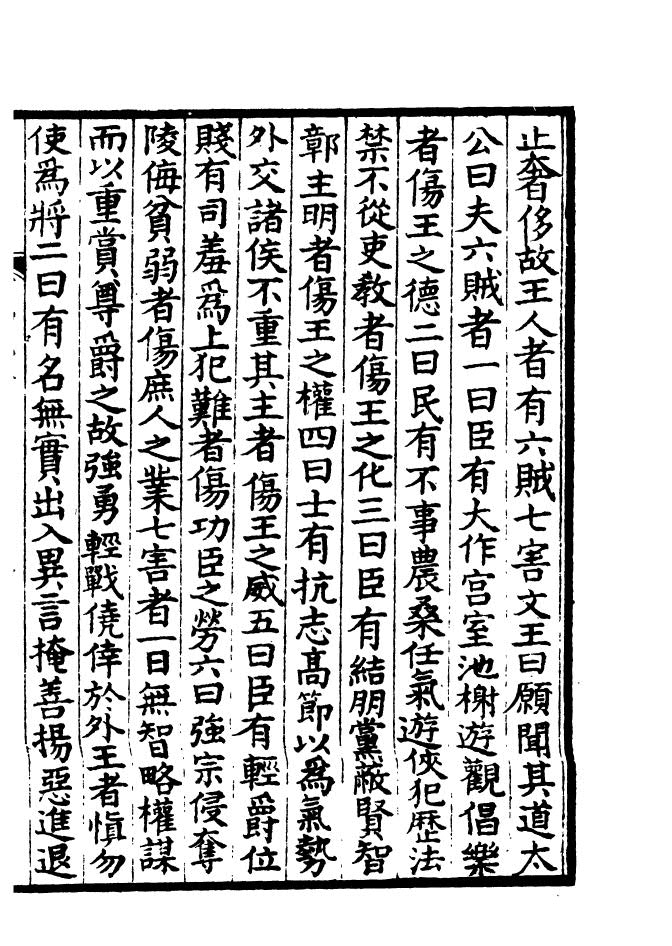 止奢侈故王人者有六賊七害文王曰願聞其道太
公曰夫六賊者一曰臣有大作宫室池榭遊觀倡樂
者傷王之德二曰民有不事農桑任氣遊俠犯歷法
禁不從吏敎者傷王之化三曰臣有結朋黨蔽賢智
鄣主明者傷王之權四曰士有抗志髙節以爲氣勢
外交諸侯不重其主者傷王之威五曰臣有輕爵位
賤有司羞爲上犯難者傷功臣之勞六曰強宗侵奪
陵侮貧弱者傷庶人之業七害者一曰無智略權謀
而以重賞尊爵之故強勇輕戰僥倖於外王者慎勿
使爲將二曰有名無實出入異言掩善揚惡進退